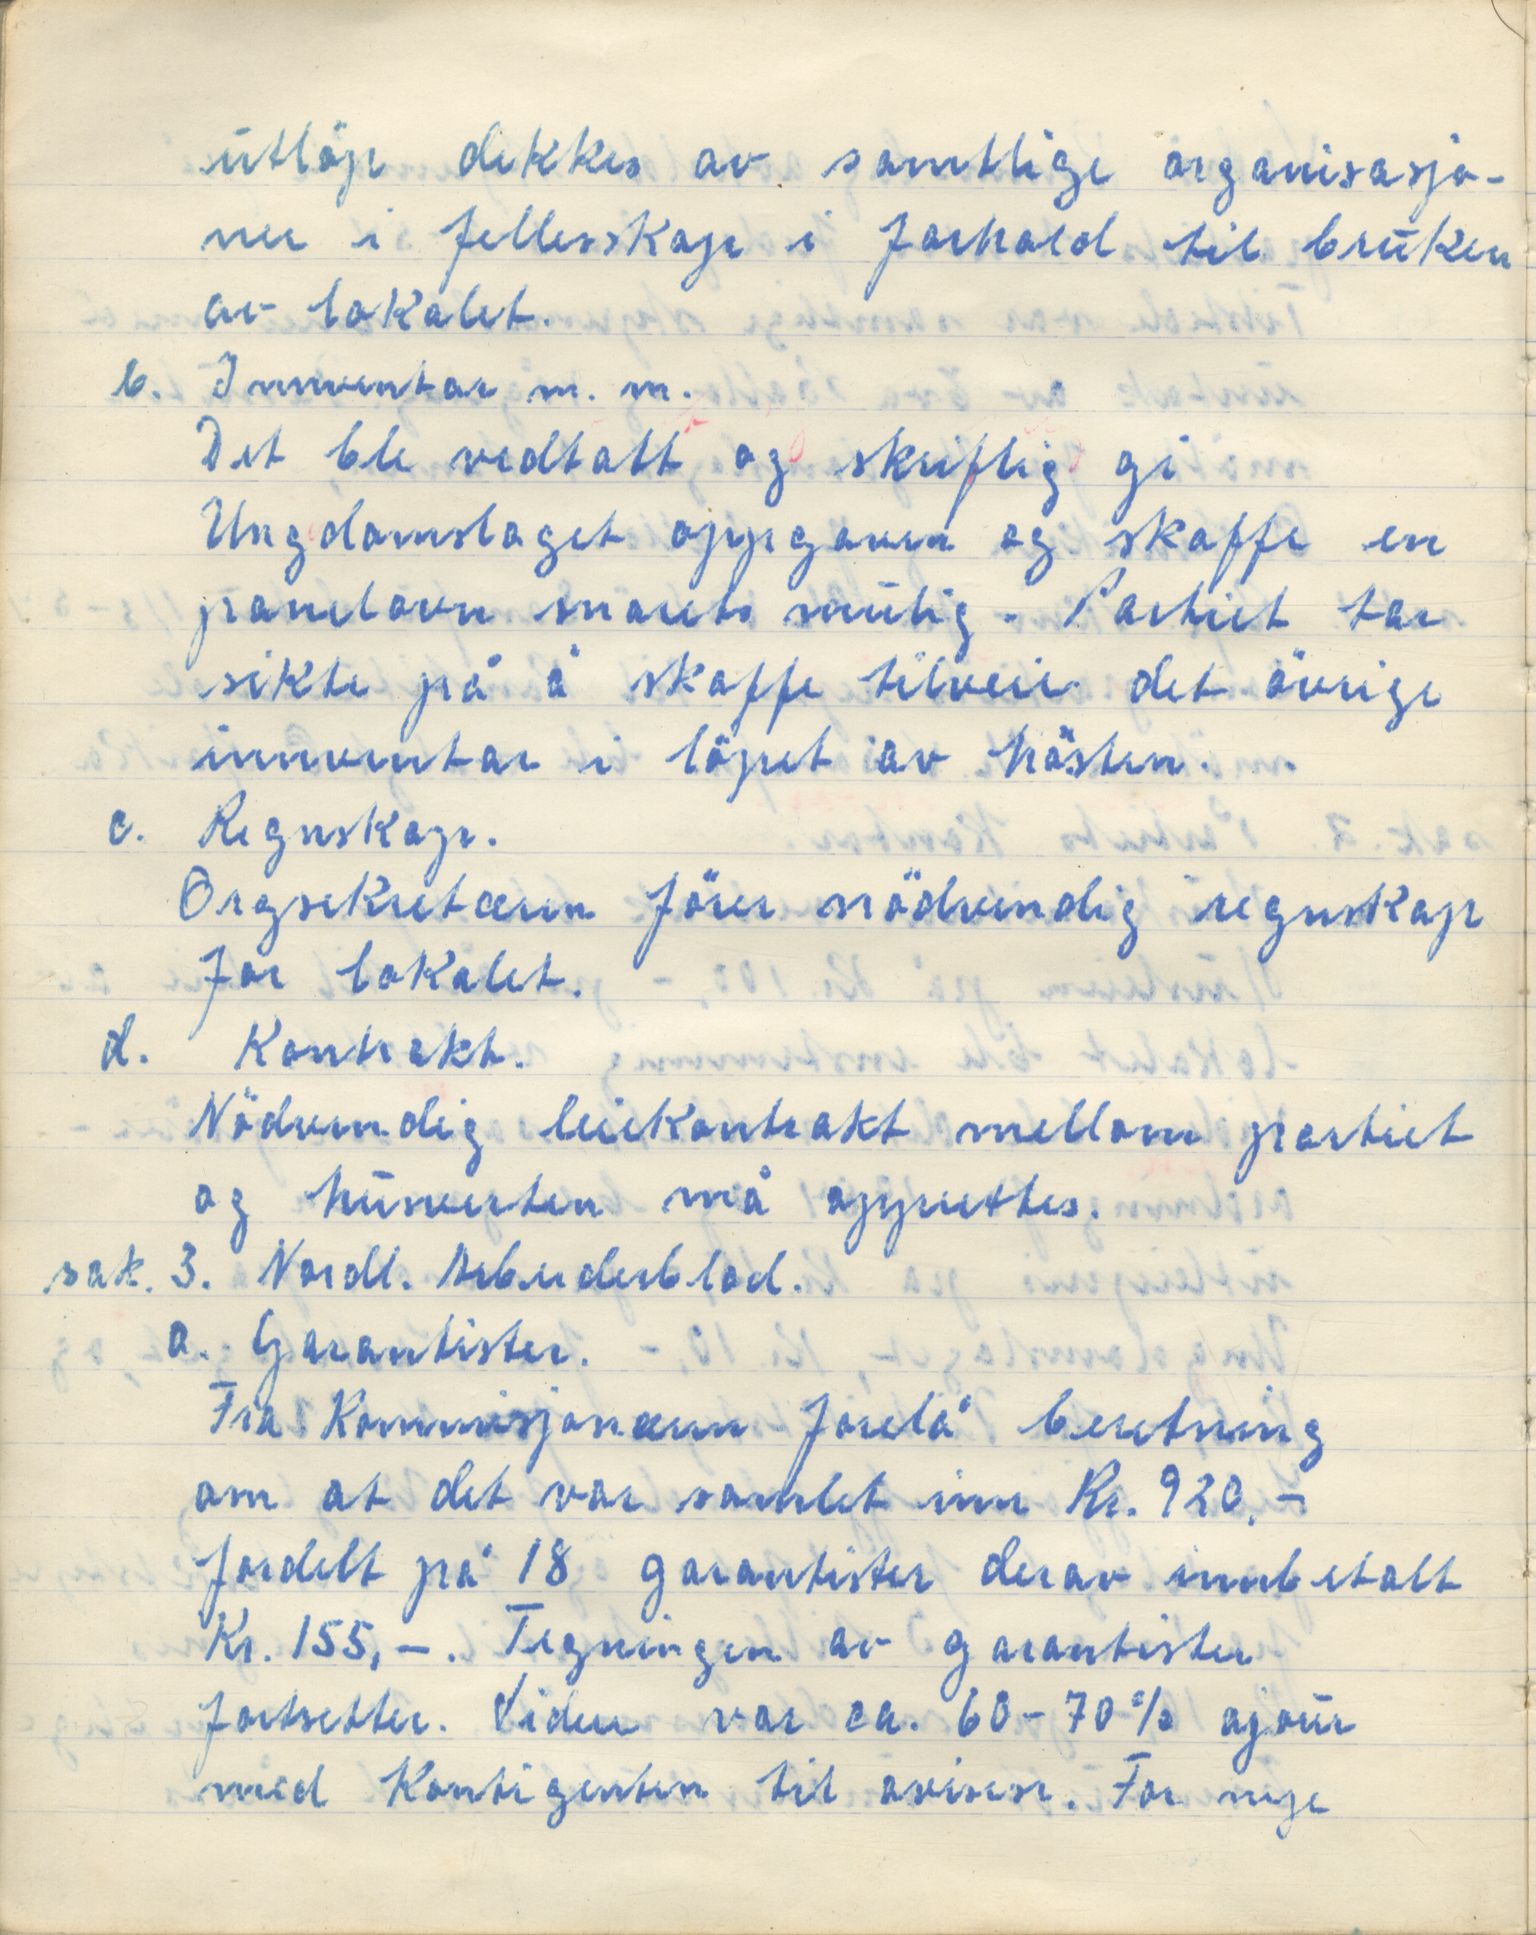 utlöp dekkes av samtlige organisasjo-
ner i fellesskap i forhold til bruken
av lokalet.
b. Innventar m. m.
Det ble vedtatt og skriftlig gi
Ungdomslaget oppgaven og skaffe en
panelovn snarets mulig. Partiet tar
sikte på å skaffe tilveie det övrige
innventar i löpet av hösten.
c. Regnskap.
Orgsekretæren förer nödvendig regnskap
for lokalet.
d. Kontrakt.
Nödvendig leiekontrakt mellom partiet
og husverten må opprettes.
sak. 3. Nordl. Arbeiderblad.
a. Garantister.
Fra Kommisjonæren forelå beretning
om at det var samlet inn Kr. 920,-
fordelt på 18 garantister derav innbetalt
Kr. 155,-. Tegningen av garantister
fortsetter. Videre var ca. 60-70% ajour
med Kontigenten til avisen. For nye